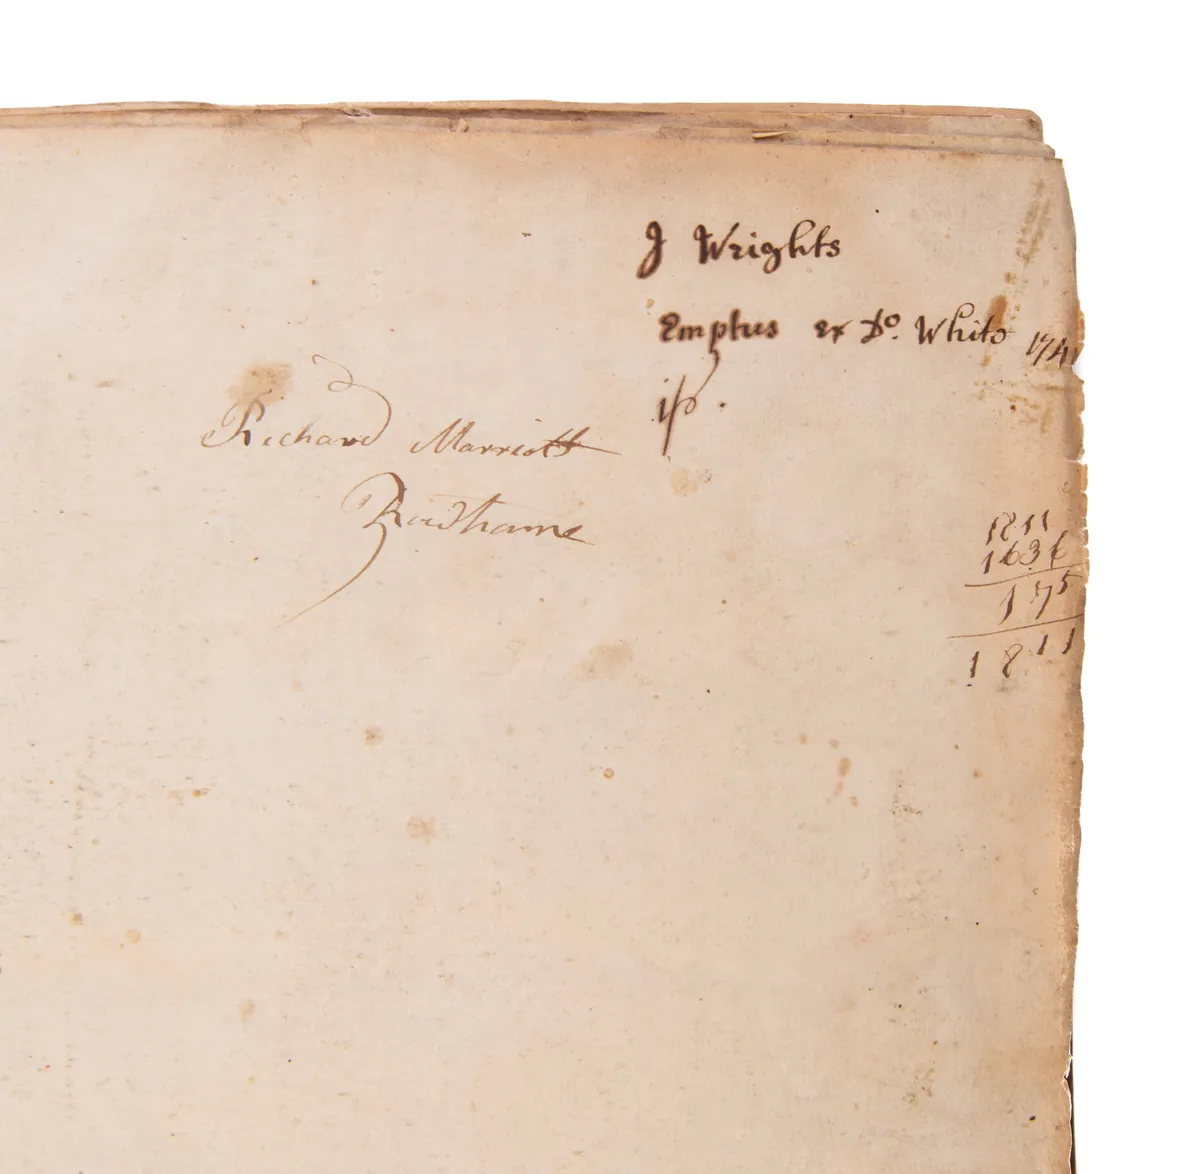 J Wrights
Emptus ex Do. White 1741
Richard Marriott
1811
1636
175
1811